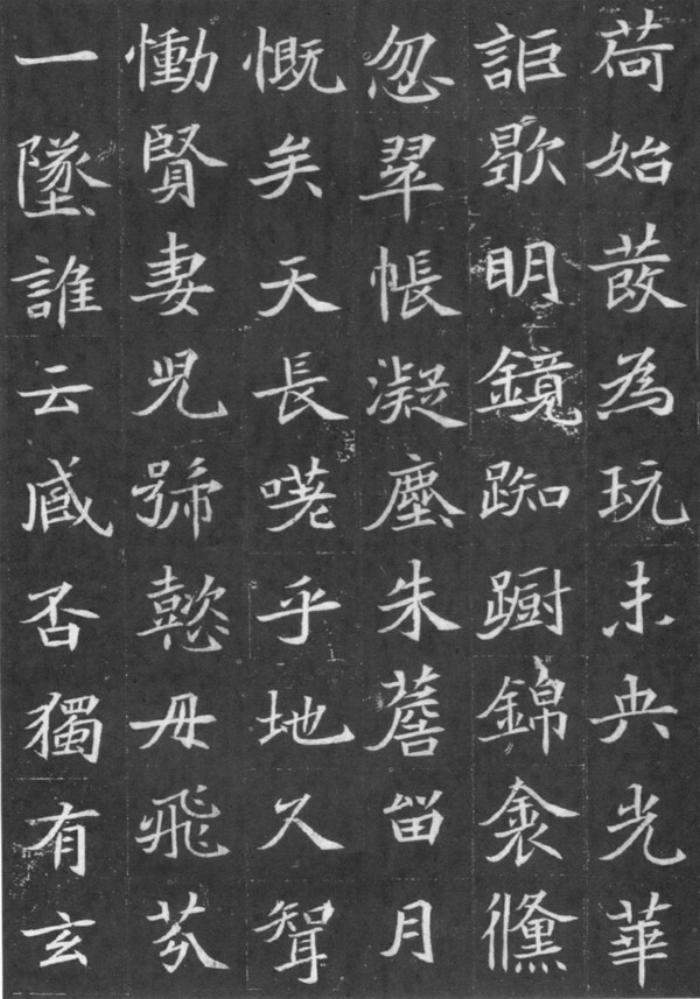 荷始蕟為玩未央光華
詎歇明鏡踟蹰錦衾儵
忽翠帳凝塵朱簷留月
慨矣天長嗟乎地久聟
慟賢妻児號懿毋飛芬
一墜誰云臧否獨有玄